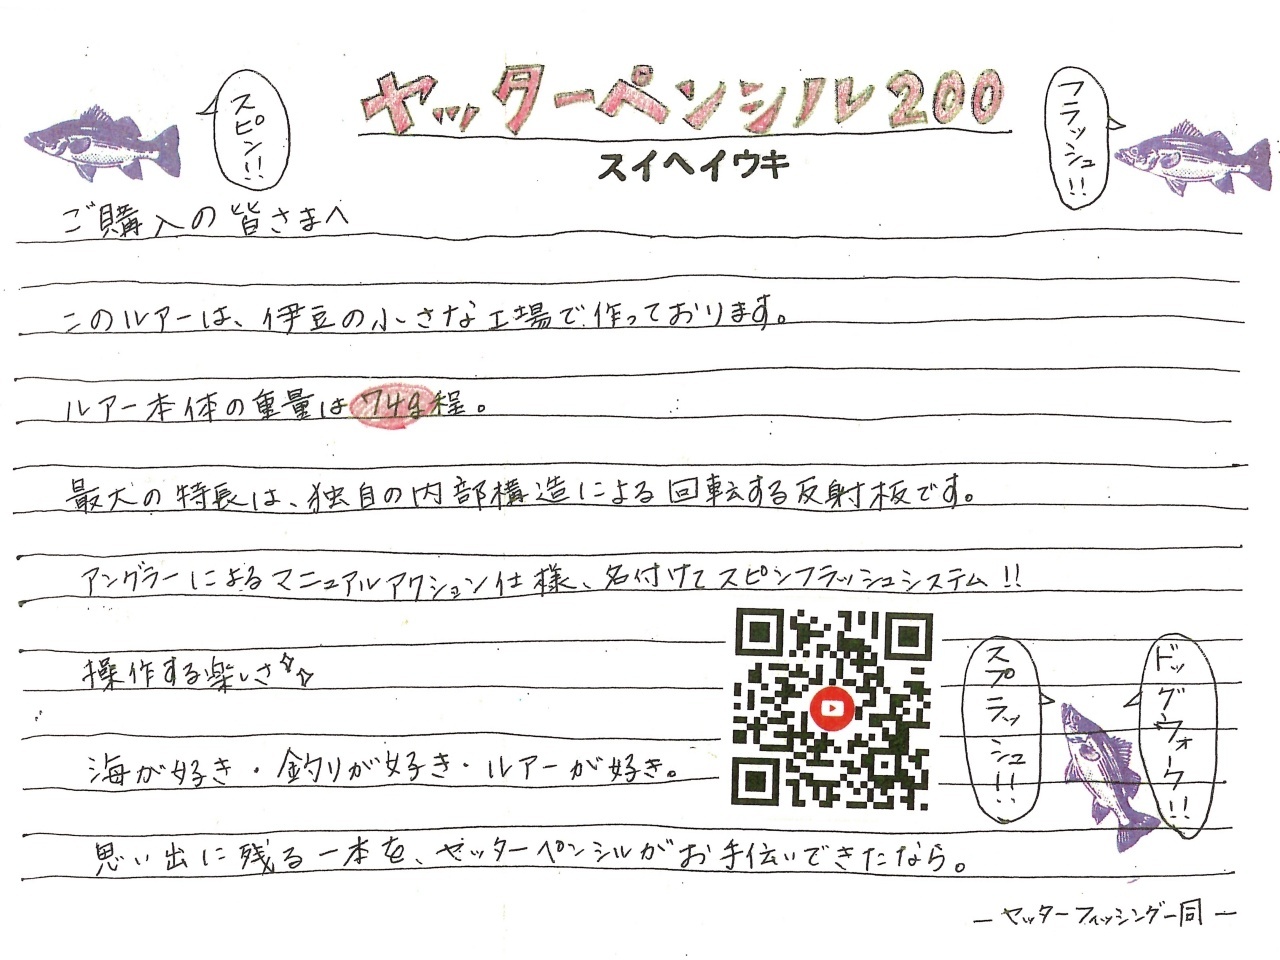 ヤッターペンシル200
スイヘイウキ
スピン!!
フラッシュ!!
ご購入の皆さまへ
このルアーは、伊豆の小さな工場で作っております。
ルアー本体の重量は74g程。
最大の特長は、独自の内部構造による回転する反射板です。
アングラーによるマニュアルアクション仕様、名付けてスピンフラッシュシステム!!
操作する楽しさ☆☆
海が好き・釣りが好き・ルアーが好き。
スプラッシュ!!
ドッグウォーク!!
思い出に残る一本を、ヤッターペンシルがお手伝いできたなら。
ーヤッターフィッシング一同ー